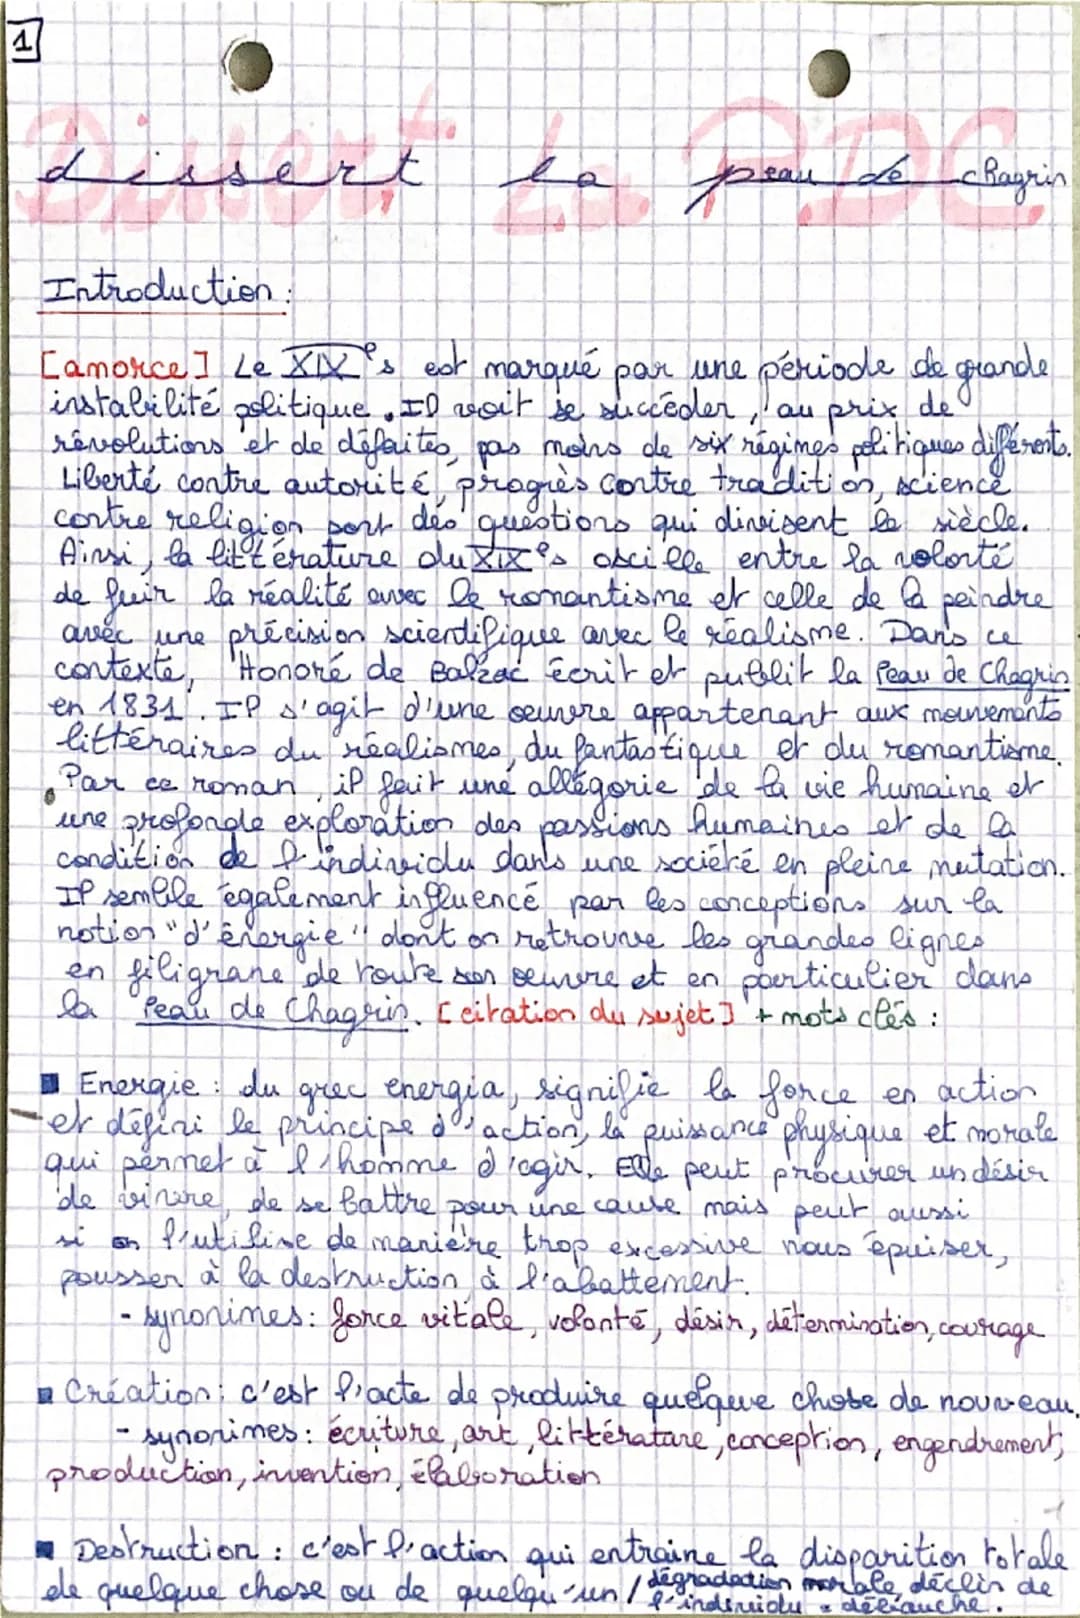 1
Dissert La PDC
dissert la peau de chagrin
Introduction :
[amorce] Le XIXes est marqué par une période de grande
instabilité politique. Il voit se succéder, au prix de
révolutions et de défaites, pas moins de six régimes politiques différents.
Liberté contre autorité, progrès contre tradition, science
contre religion sont des questions qui divisent le siècle.
Ainsi, la littérature du XIXes oscille entre la volonté
de fuir la réalité avec le romantisme et celle de la peindre
avec une précision scientifique avec le réalisme. Dans ce
contexte, Honoré de Balzac écrit et publit la Peau de Chagrin
en 1831. Il s'agit d'une oeuvre appartenant aux mouvements
littéraires du réalismes, du fantastique et du romantisme.
Par ce roman, il fait une allégorie de la vie humaine et
une profonde exploration des passions humaines et de la
condition de l'individu dans une société en pleine mutation.
Il semble également influencé par les conceptions sur la
notion "d'énergie" dont on retrouve les grandes lignes
en filigrane de toute son oeuvre et en particulier dans
la Peau de Chagrin. [citation du sujet] + mots clés :
Energie : du grec energia, signifie la force en action
et défini le principe d'action, la puissance physique et morale
qui permet à l'homme d'agir. Elle peut procurer un désir
de vivre, de se battre pour une cause mais peut aussi
si on l'utilise de manière trop excessive nous épuiser,
pousser à la destruction, à l'abattement.
- synonimes : force vitale, volonté, désir, détermination, courage
Création : c'est l'acte de produire quelque chose de nouveau.
- synonimes : écriture, art, littérature, conception, engendrement,
production, invention, élaboration
Destruction : c'est l'action qui entraine la disparition totale
de quelque chose ou de quelqu'un / dégradation morale, déclin de
l'individu = débauche.